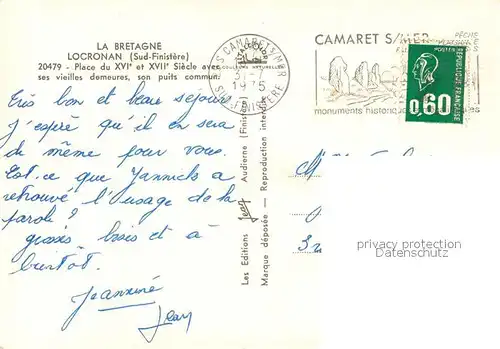 LA BRETAGNE
LOCRONAN (Sud-Finistère)
20479 - Place du XVIᵉ et XVIIᵉ Siècle avec
ses vieilles demeures, son puits commun.
CAMARET S/MER
31-7
1975
SUD-FINISTÈRE
CAMARET S/MER
PÊCHE
monuments historiques
REPUBLIQUE FRANÇAISE
POSTES
0,60
Très bon et beau séjour
j'espère qu'il en sera
de même pour vous.
Est-ce que Yannick a
retrouvé l'usage de la
parole ?
grosses bises et à
bientôt.
Jean
Les Editions Jean Audierne (Finistère)
Marque déposée — Reproduction interdite
privacy protection
Datenschutz